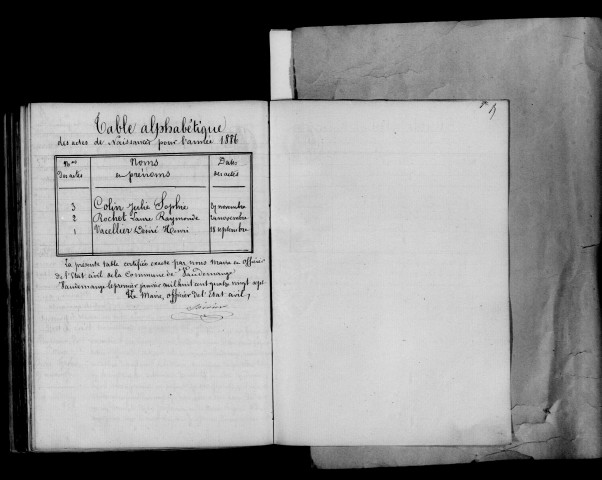 Table alphabétique
des actes de Naissances pour l'année 1886
Nos des actes
Noms et prénoms
Dates des actes
3 Colin Julie Sophie 27 novembre
2 Rochet Laure Raymonde novembre
1 Vacellier Désiré Henri 18 septembre
La présente table certifiée exacte par nous Maire et officier
de l'Etat civil de la Commune de Vaudemange
Vaudemange le premier janvier mil huit cent quatre vingt sept
Le Maire, officier de l'Etat civil,